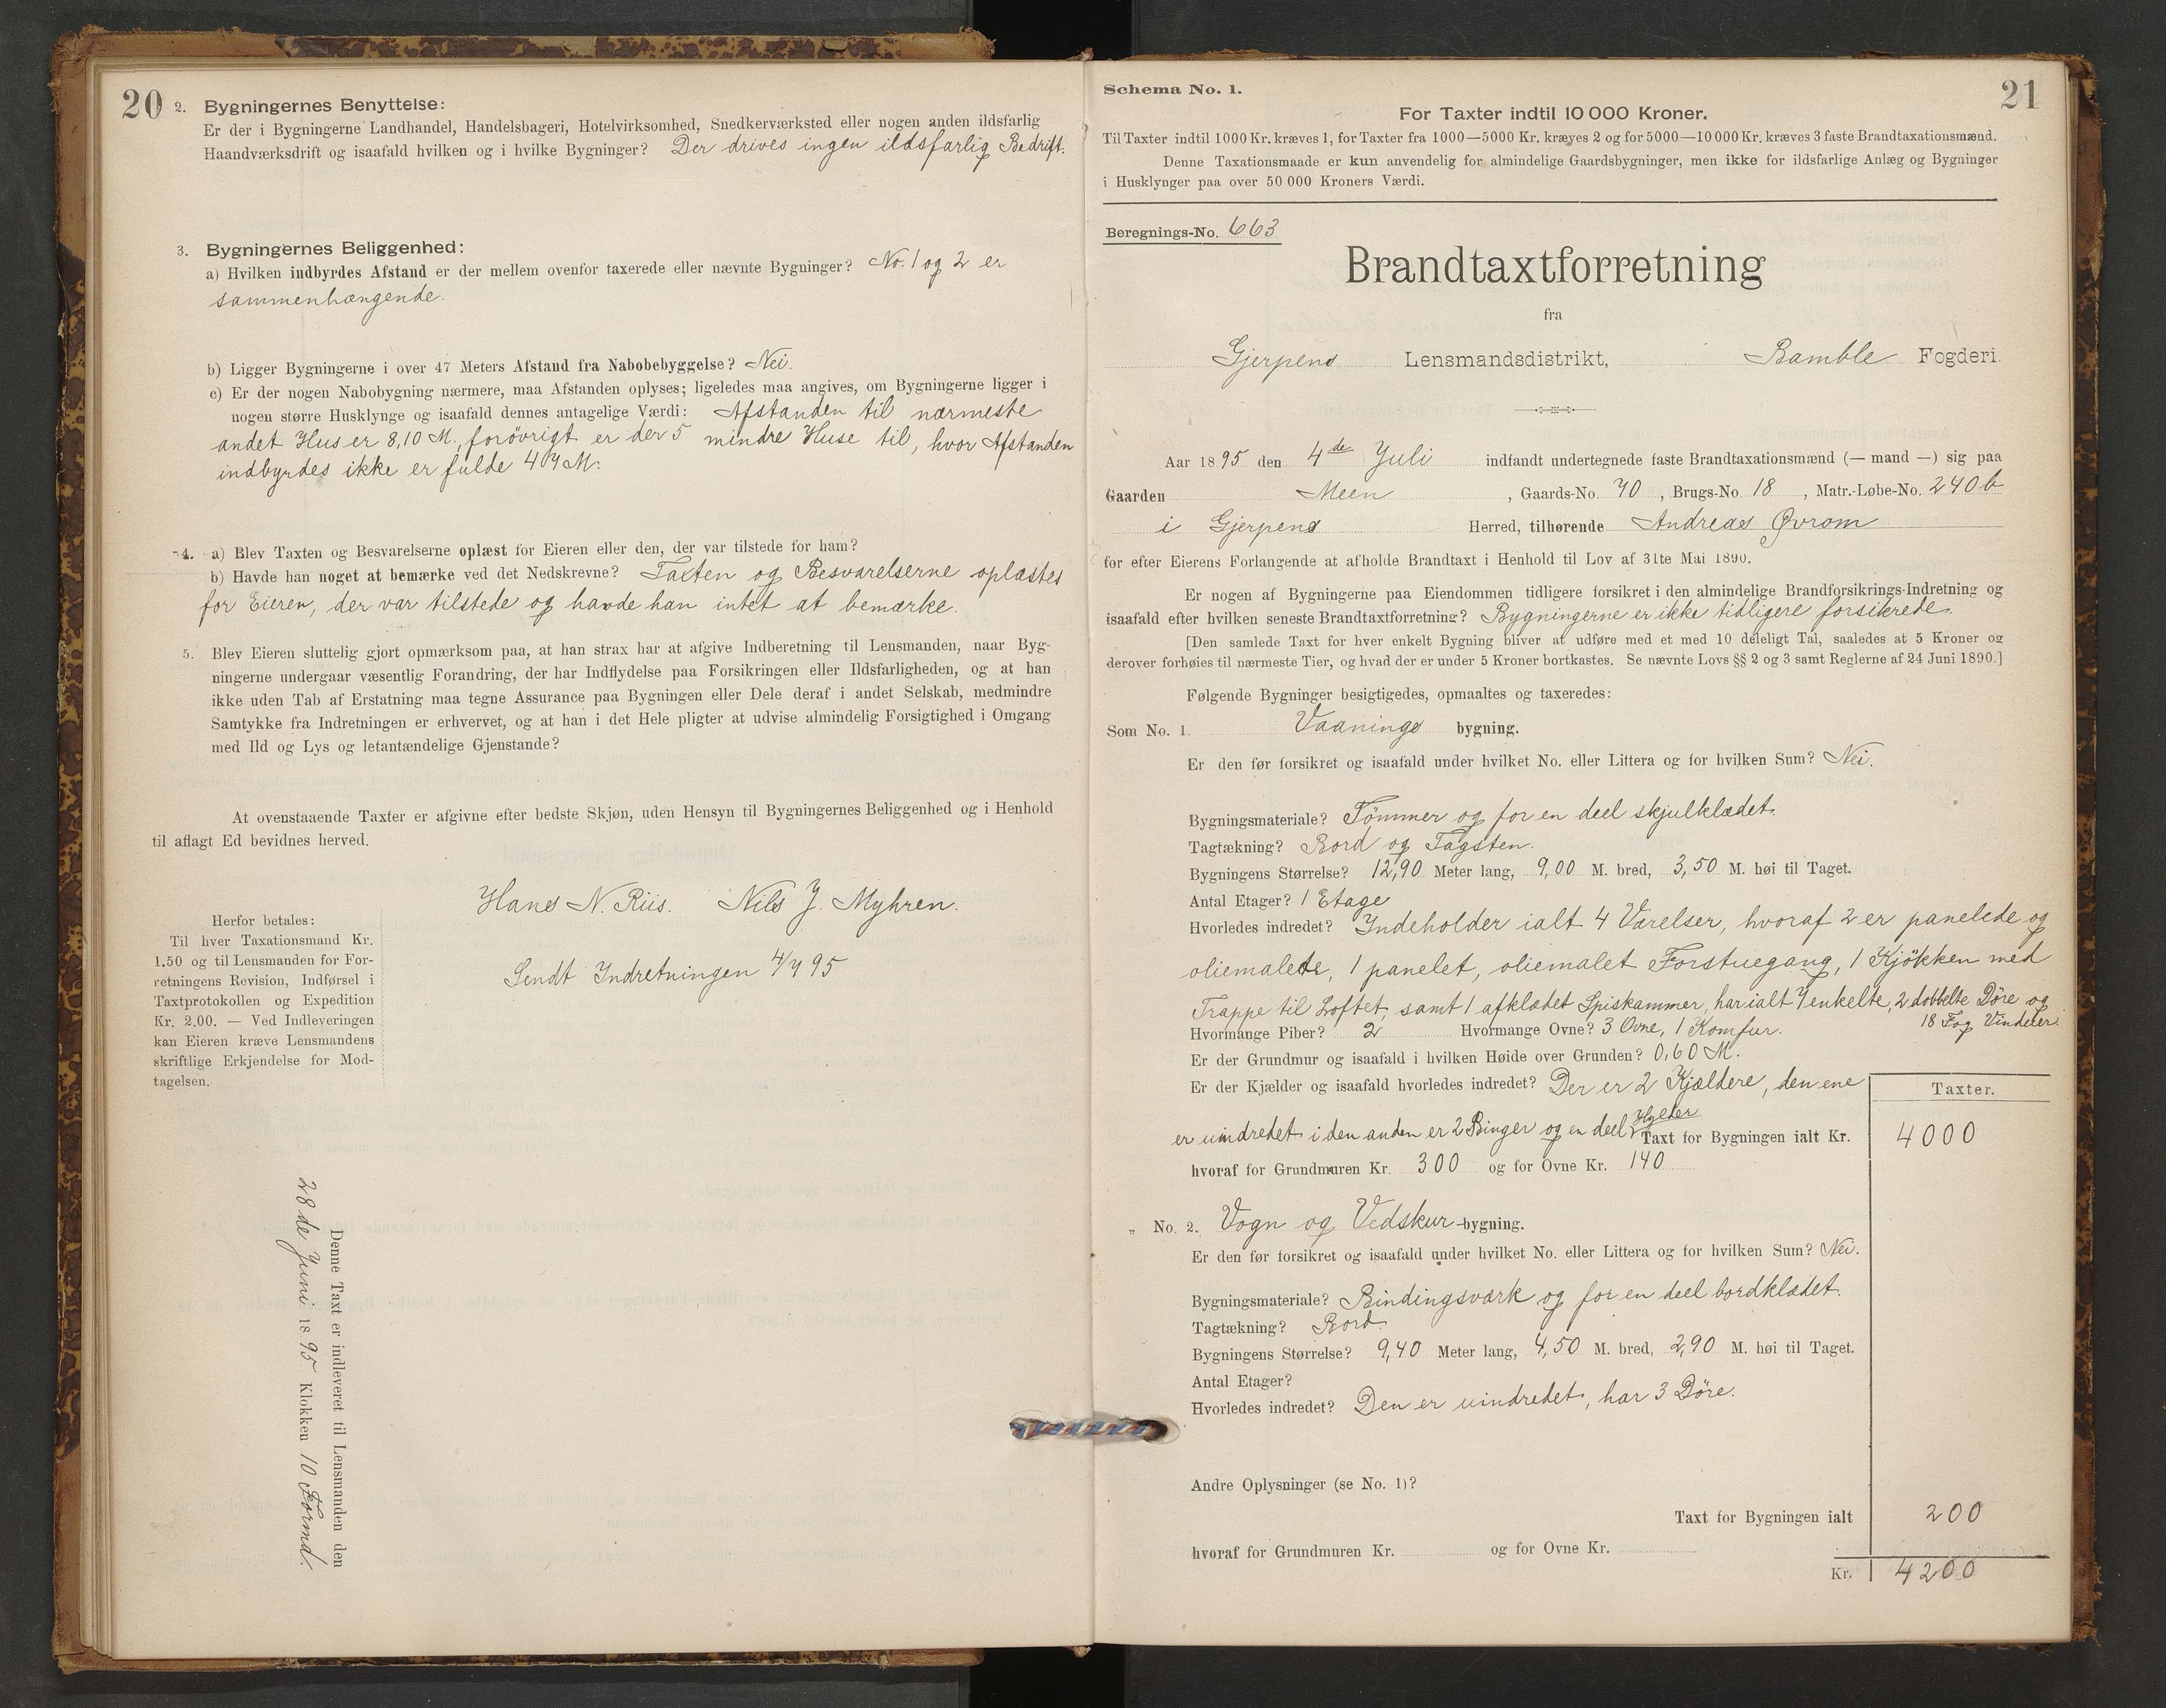 20
2. Bygningernes Benyttelse:
Er der i Bygningerne Landhandel, Handelsbageri, Hotelvirksomhed, Snedkerværksted eller nogen anden ildsfarlig
Haandværksdrift og isaafald hvilken og i hvilke Bygninger? Der drives ingen ildsfarlig Bedrift.
3. Bygningernes Beliggenhed:
a) Hvilken indbyrdes Afstand er der mellem ovenfor taxerede eller nævnte Bygninger? No. 1 og 2 er
sammenhængende.
b) Ligger Bygningerne i over 47 Meters Afstand fra Nabobebyggelse? Nei.
c) Er der nogen Nabobygning nærmere, maa Afstanden oplyses; ligeledes maa angives, om Bygningerne ligger i
nogen større Husklynge og isaafald dennes antagelige Værdi: Afstanden til nærmeste
andet Hus er 8,10 M., forövrigt er der 5 mindre Huse til, hvor Afstanden
indbyrdes ikke er fulde 47 M.
4. a) Blev Taxten og Besvarelserne oplæst for Eieren eller den, der var tilstede for ham?
b) Havde han noget at bemærke ved det Nedskrevne? Taxten og Besvarelserne oplæstes
for Eieren, der var tilstede og havde han intet at bemærke.
5. Blev Eieren sluttelig gjort opmærksom paa, at han strax har at afgive Indberetning til Lensmanden, naar Byg-
ningerne undergaar væsentlig Forandring, der har Indflydelse paa Forsikringen eller Ildsfarligheden, og at han
ikke uden Tab af Erstatning maa tegne Assurance paa Bygningen eller Dele deraf i andet Selskab, medmindre
Samtykke fra Indretningen er erhvervet, og at han i det Hele pligter at udvise almindelig Forsigtighed i Omgang
med Ild og Lys og letantændelige Gjenstande?
At ovenstaaende Taxter er afgivne efter bedste Skjøn, uden Hensyn til Bygningernes Beliggenhed og i Henhold
til aflagt Ed bevidnes herved.
Hans N. Riis. Nils J. Myhren.
Sendt Indretningen 4/7 95
Herfor betales:
Til hver Taxationsmand Kr.
1.50 og til Lensmanden for For-
retningens Revision, Indførsel i
Taxtprotokollen og Expedition
Kr. 2.00. — Ved Indleveringen
kan Eieren kræve Lensmandens
skriftlige Erkjendelse for Mod-
tagelsen.
Denne Taxt er indleveret til Lensmanden den
28de Juni 1895 Klokken 10 Formd.
21
Schema No. 1.
For Taxter indtil 10 000 Kroner.
Til Taxter indtil 1000 Kr. kræves 1, for Taxter fra 1000—5000 Kr. kræves 2 og for 5000—10 000 Kr. kræves 3 faste Brandtaxationsmænd.
Denne Taxationsmaade er kun anvendelig for almindelige Gaardsbygninger, men ikke for ildsfarlige Anlæg og Bygninger
i Husklynger paa over 50 000 Kroners Værdi.
Beregnings-No. 663
Brandtaxtforretning
fra
Gjerpens Lensmandsdistrikt, Bamble Fogderi
Aar 1895 den 4de Juli indfandt undertegnede faste Brandtaxationsmænd (— mand —) sig paa
Gaarden Meen, Gaards-No. 70, Brugs-No. 18, Matr.-Løbe-No. 240b
i Gjerpens Herred, tilhørende Andreas Øvrom
for efter Eierens Forlangende at afholde Brandtaxt i Henhold til Lov af 31te Mai 1890.
Er nogen af Bygningerne paa Eiendommen tidligere forsikret i den almindelige Brandforsikrings-Indretning og
isaafald efter hvilken seneste Brandtaxtforretning? Bygningerne er ikke tidligere forsikrede.
[Den samlede Taxt for hver enkelt Bygning bliver at udføre med et med 10 deleligt Tal, saaledes at 5 Kroner og
derover forhøies til nærmeste Tier, og hvad der er under 5 Kroner bortkastes. Se nævnte Lovs §§ 2 og 3 samt Reglerne af 24 Juni 1890.]
Følgende Bygninger besigtigedes, opmaaltes og taxeredes:
Som No. 1. Vaanings bygning.
Er den før forsikret og isaafald under hvilket No. eller Littera og for hvilken Sum? Nei.
Bygningsmateriale? Tömmer og for en deel skjulklædet.
Tagtækning? Bord og Tagsten.
Bygningens Størrelse? 12,90 Meter lang, 9,00 M. bred, 3,50 M. høi til Taget.
Antal Etager? 1 Etage
Hvorledes indredet? Indeholder ialt 4 Værelser, hvoraf 2 er panelede og
oliemalede, 1 panelet, oliemalet Forstuegang, 1 Kjökken med
Trappe til Loftet, samt 1 afklædet Spiskammer, har ialt 7 enkelte, 2 dobbelte Döre og
18 Fag Vinduer.
Hvormange Piber? 2 Hvormange Ovne? 3 Ovne, 1 Komfur.
Er der Grundmur og isaafald i hvilken Høide over Grunden? 0,60 M.
Er der Kjælder og isaafald hvorledes indredet? Der er 2 Kjældere, den ene
Taxter.
er uindredet i den anden er 2 Binger og en deel Hylder
Taxt for Bygningen ialt Kr. 4000
hvoraf for Grundmuren Kr. 300 og for Ovne Kr. 140
„ No. 2. Vogn og Vedskur-bygning.
Er den før forsikret og isaafald under hvilket No. eller Littera og for hvilken Sum? Nei.
Bygningsmateriale? Bindingsværk og for en deel bordklædet.
Tagtækning? Bord.
Bygningens Størrelse? 9,40 Meter lang, 4,50 M. bred, 2,90 M. høi til Taget.
Antal Etager?
Hvorledes indredet? Den er uindredet, har 3 Döre.
Andre Oplysninger (se No. 1)?
Taxt for Bygningen ialt 200
hvoraf for Grundmuren Kr. og for Ovne Kr.
Kr. 4200